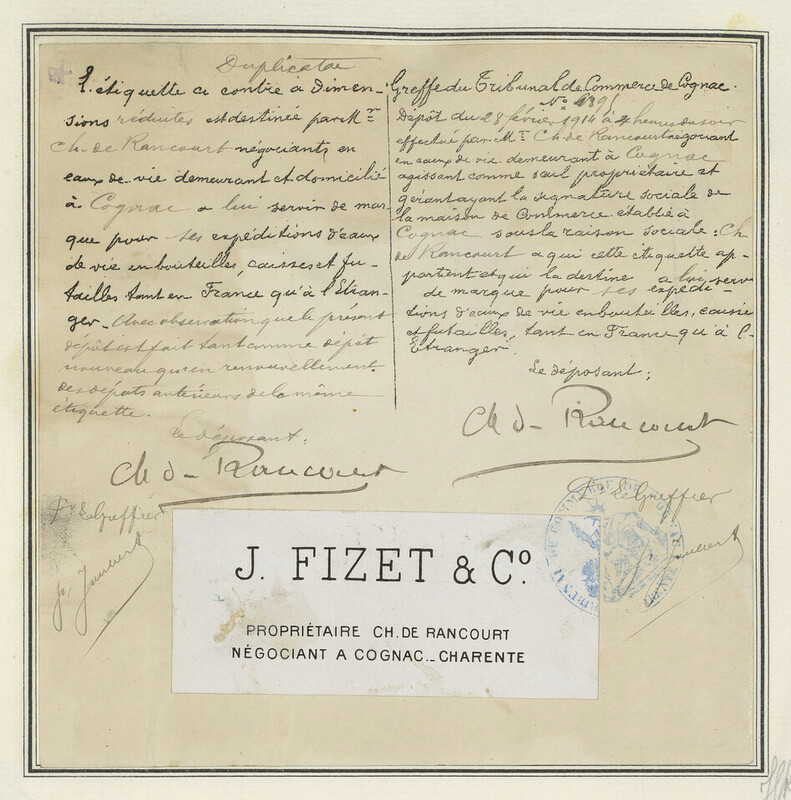 Duplicata
L'étiquette ci contre à dimen-
sions réduites est destinée par Mr
Ch. de Rancourt négociants en
eaux de vie demeurant et domicilié
à Cognac a lui servir de mar
que pour ses expéditions d'eaux
de vie en bouteilles, caisses et fu-
tailles tant en France qu'à l'Etran-
ger. Avec observation que le présent
dépôt est fait tant comme dépôt
nouveau qu'en renouvellement
des dépôts antérieurs de la même
étiquette.
Le déposant:
Ch de Rancourt
Pr Le Greffier
Greffe du Tribunal de Commerce de Cognac.
No
Dépôt du 28 février 1914 à 2 heures du soir
effectué par Mr Ch. de Rancourt négociant
en eaux de vie demeurant à Cognac
agissant comme seul propriétaire et
gérant ayant la signature sociale de
la maison de Commerce établie à
Cognac sous la raison sociale: Ch
de Rancourt a qui cette étiquette ap-
partient et qui la destine a lui servir
de marque pour ses expédi-
tions d'eaux de vie en bouteilles, caisses
et futailles, tant en France qu'à l'-
Etranger.
Le déposant:
Ch de Rancourt
Pr Le Greffier
J. FIZET & Co.
PROPRIÉTAIRE CH. DE RANCOURT
NÉGOCIANT A COGNAC_CHARENTE